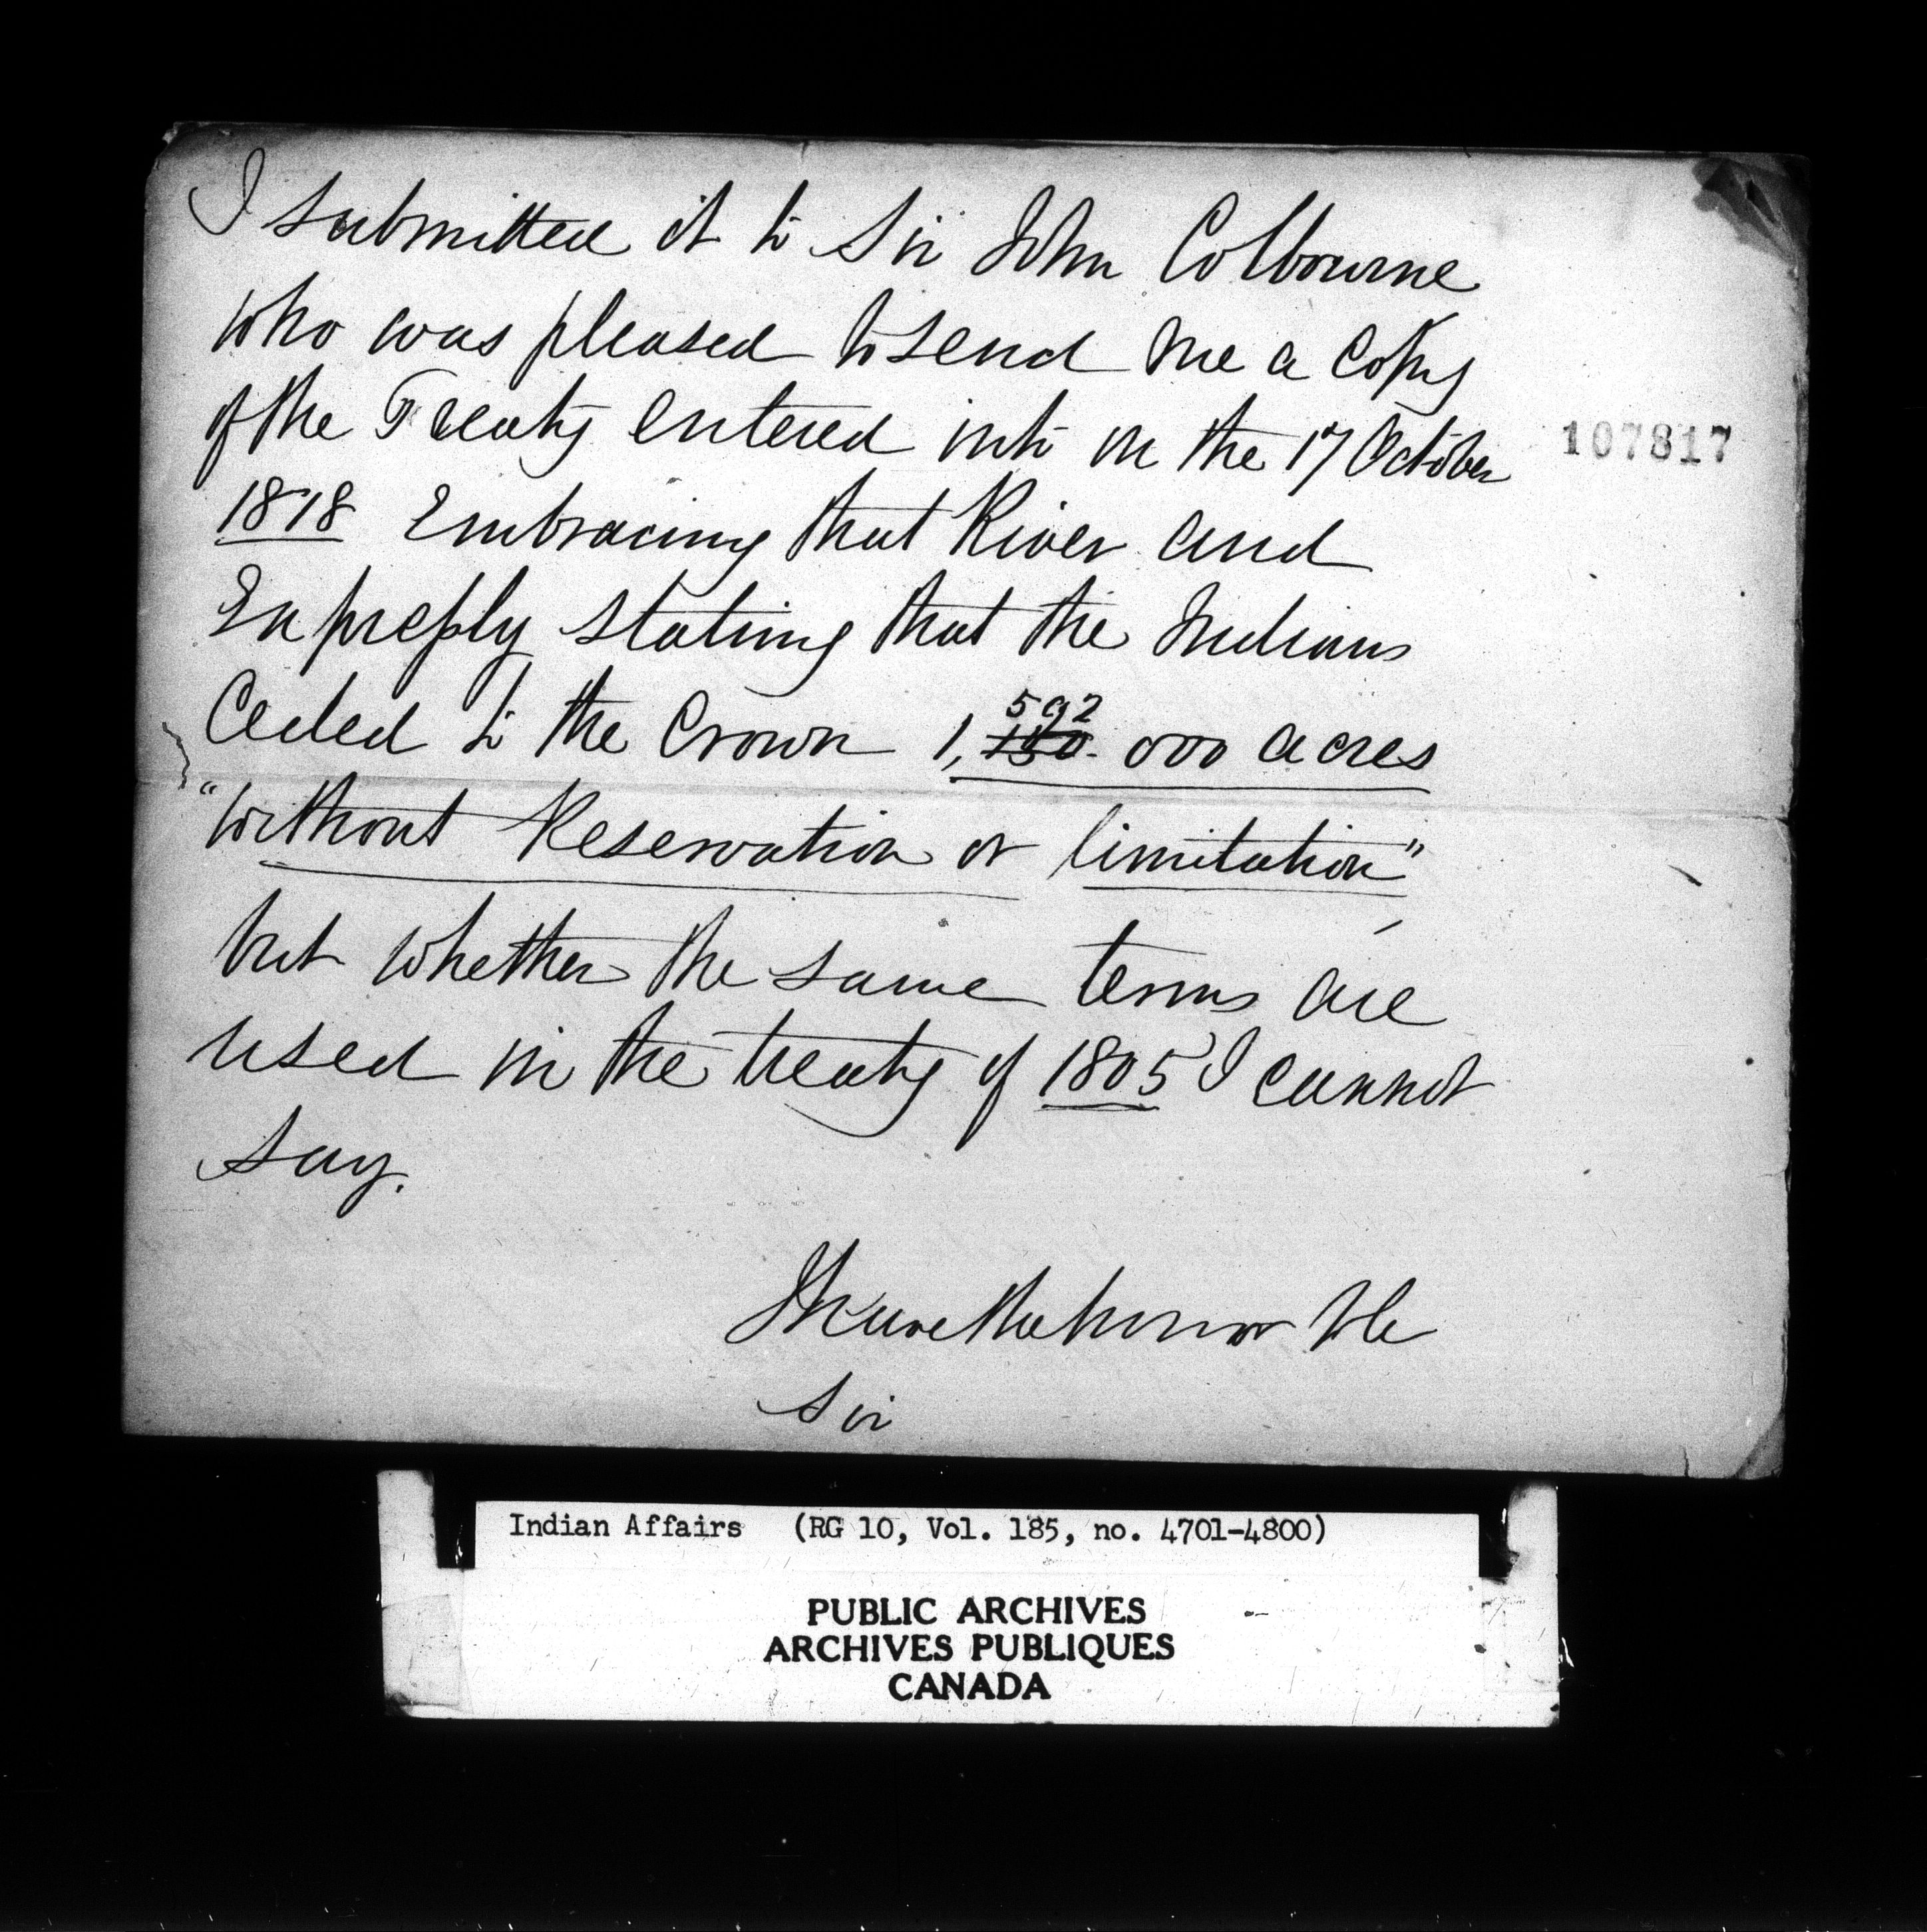 I submitted it to Sir John Colbourne
who was pleased to send me a copy
of the Treaty entered into on the 17 October
107817
1818 Embracing that River and
Expressly stating that the Indians
Ceded to the Crown 1,592 000 acres
"without Reservation or limitation"
but whether the same terms are
used in the treaty of 1805 I cannot
say.
I have the honor to be
Sir
Indian Affairs (RG 10, Vol. 185, no. 4701-4800)
PUBLIC ARCHIVES
ARCHIVES PUBLIQUES
CANADA